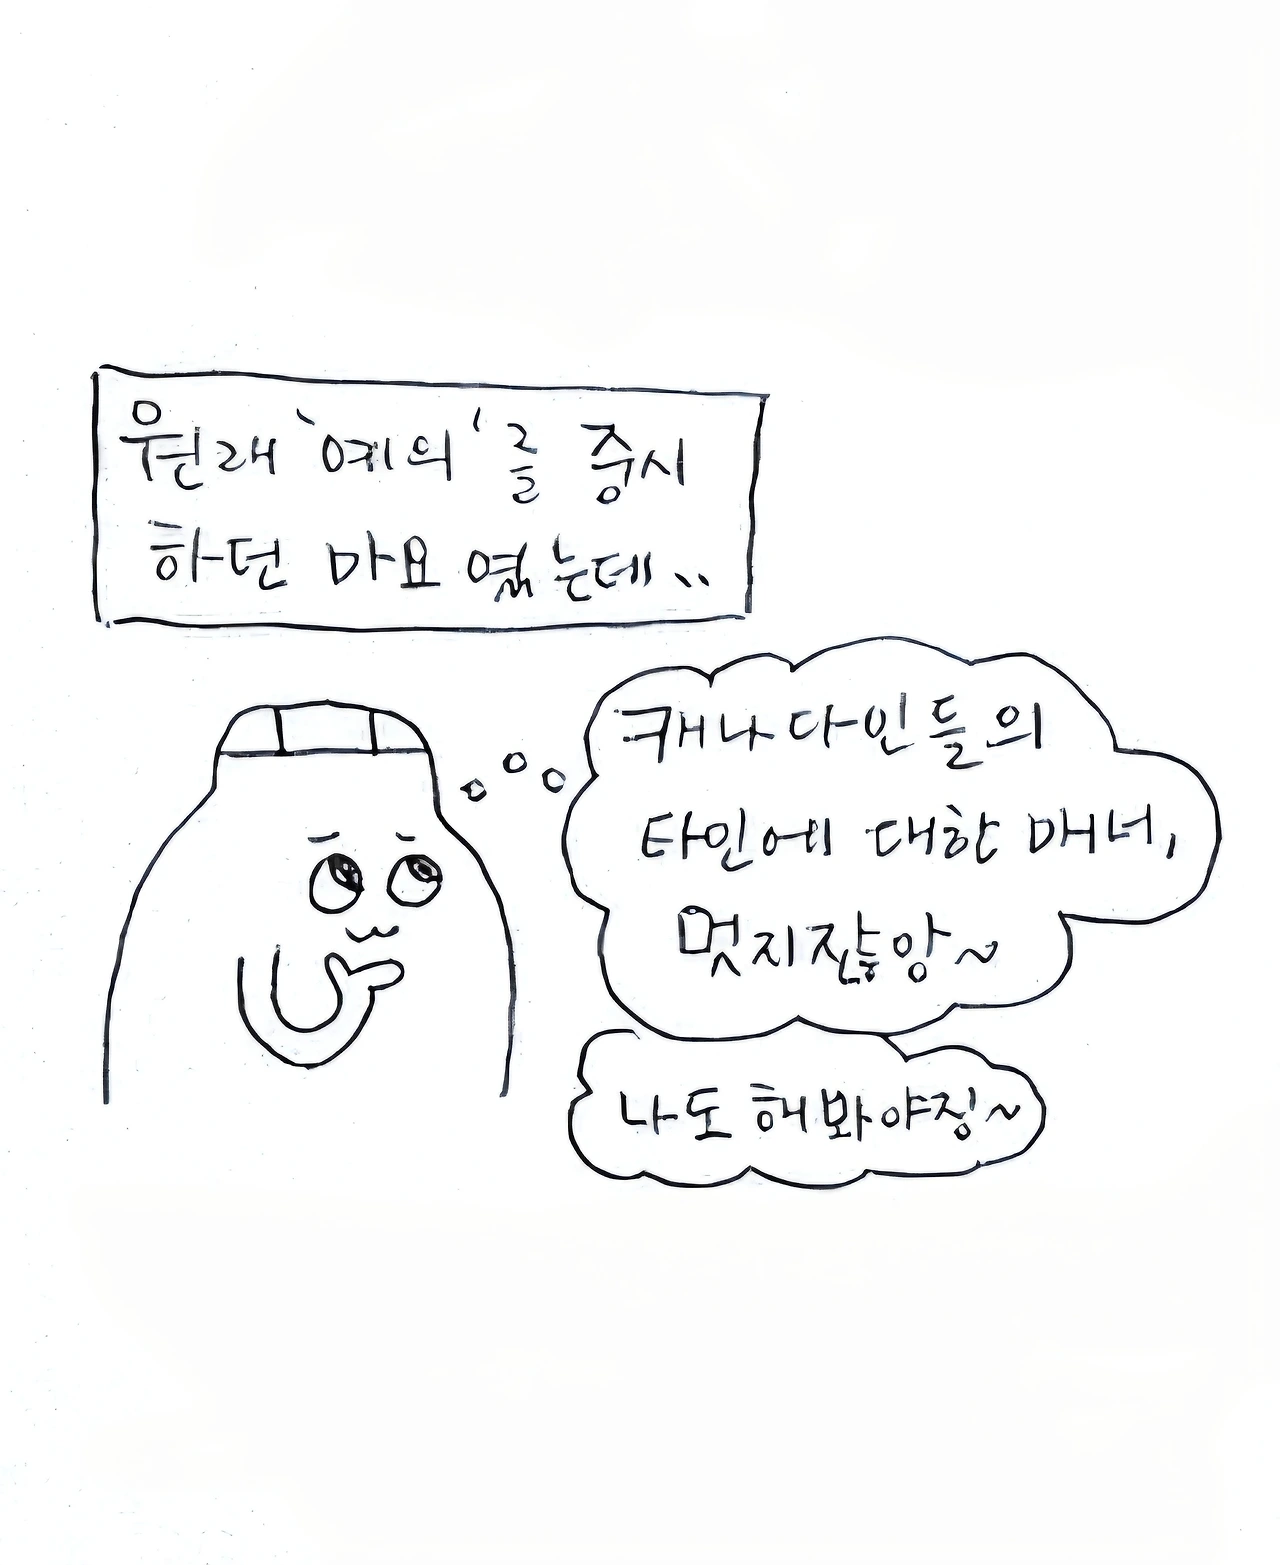 원래 '예의'를 중시
하던 마요였는데..
캐나다인들의
타인에 대한 매너,
멋지잖앙~
나도 해봐야징~